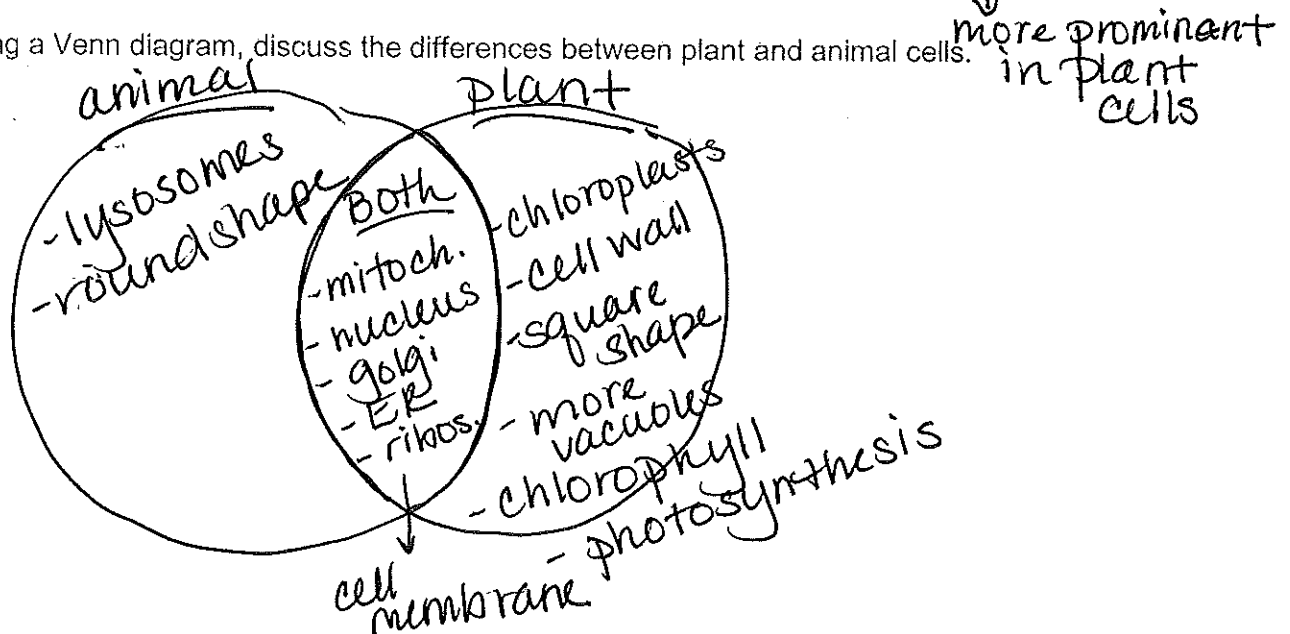 ng a Venn diagram, discuss the differences between plant and animal cells.
more prominant
in plant
cells
animal
-lysosomes
-round shape
Both
-mitoch.
-nucleus
- golgi
- ER
- ribos.
cell
membrane
plant
-chloroplasts
-cell wall
-square
shape
- more
vacuoles
- chlorophyll
- photosynthesis